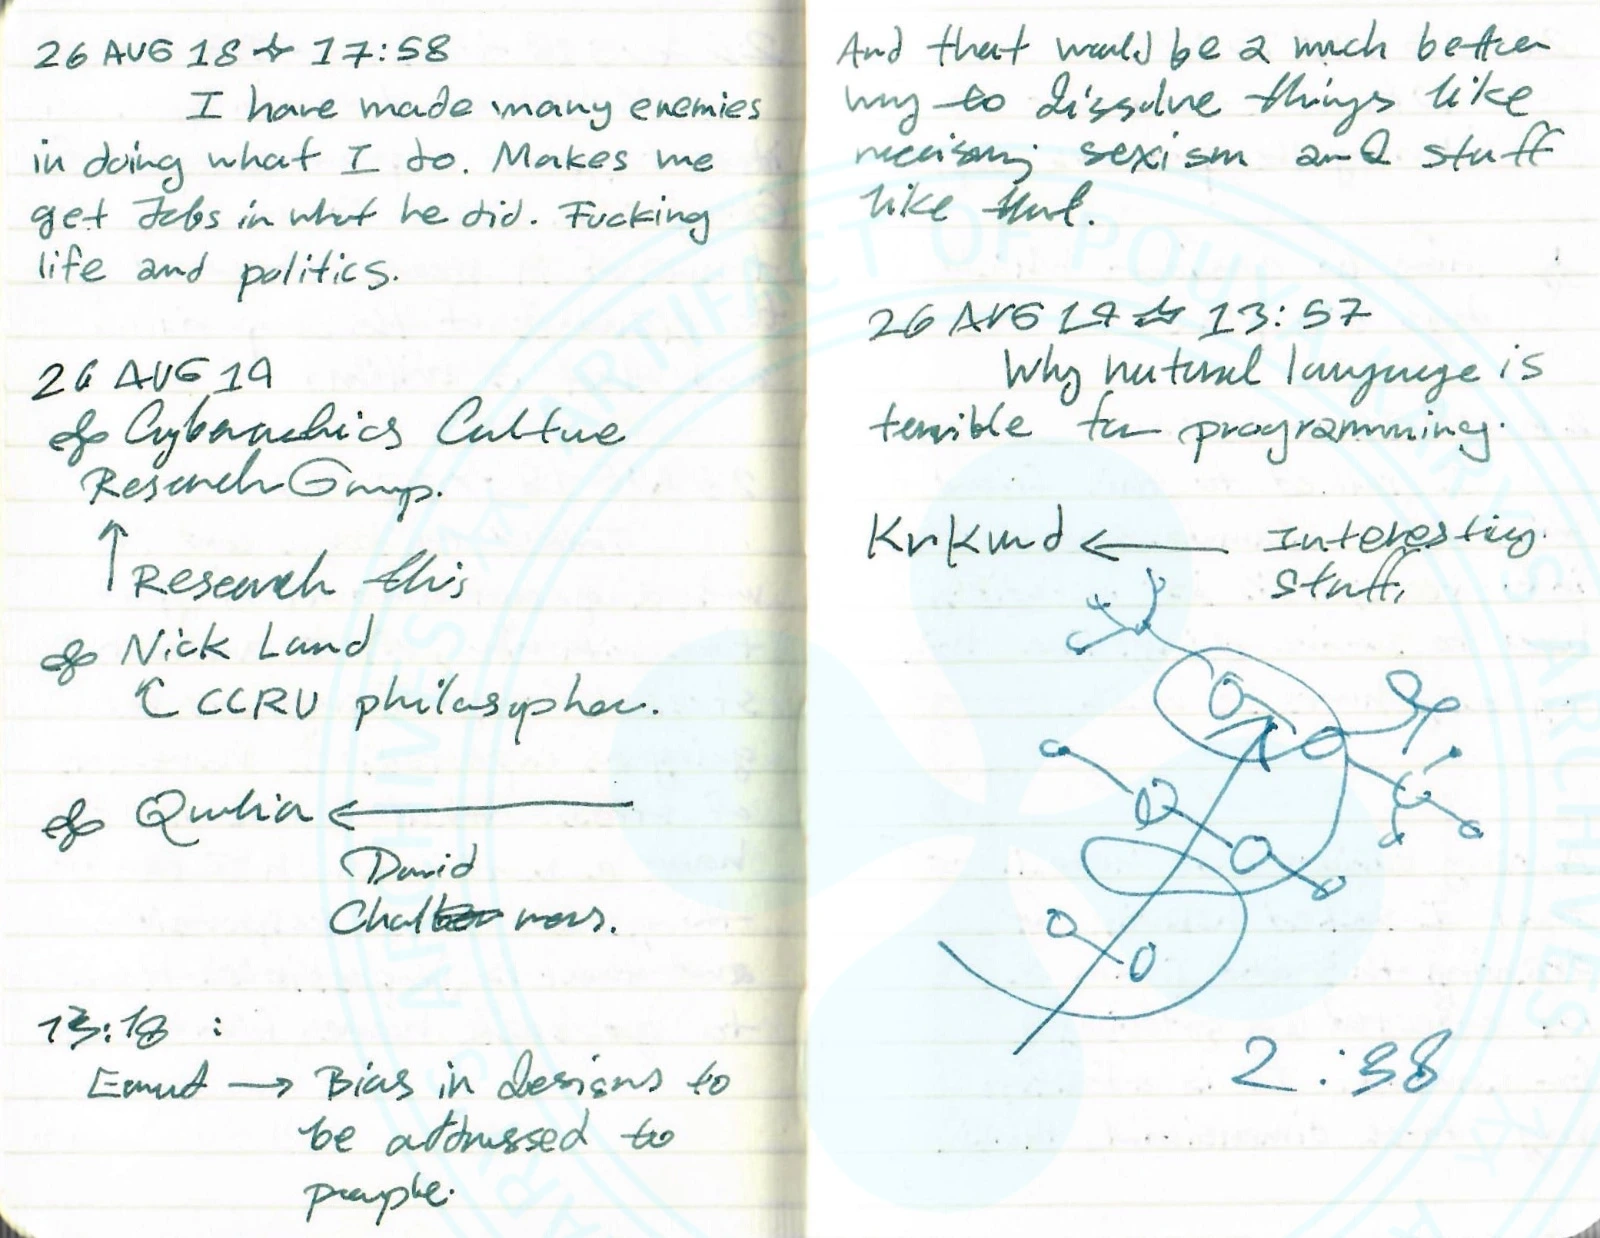 26 AUG 18 17:58
I have made many enemies
in doing what I do. Makes me
get Jobs in what he did. Fucking
life and politics.
26 AUG 19
Cybernetics Culture
Research Group.
Research this
Nick Land
CCRU philosopher.
Qualia
David
Chalmers.
13:18 :
→ Bias in designs to
be addressed to
people.
And that would be a much better
way to dissolve things like
racism, sexism and stuff
like that.
26 AUG 19 13:57
Why natural language is
terrible for programming.
← Interesting
stuff,
2:38
ARTIFACT OF POUYA KARYS ARCHIVES